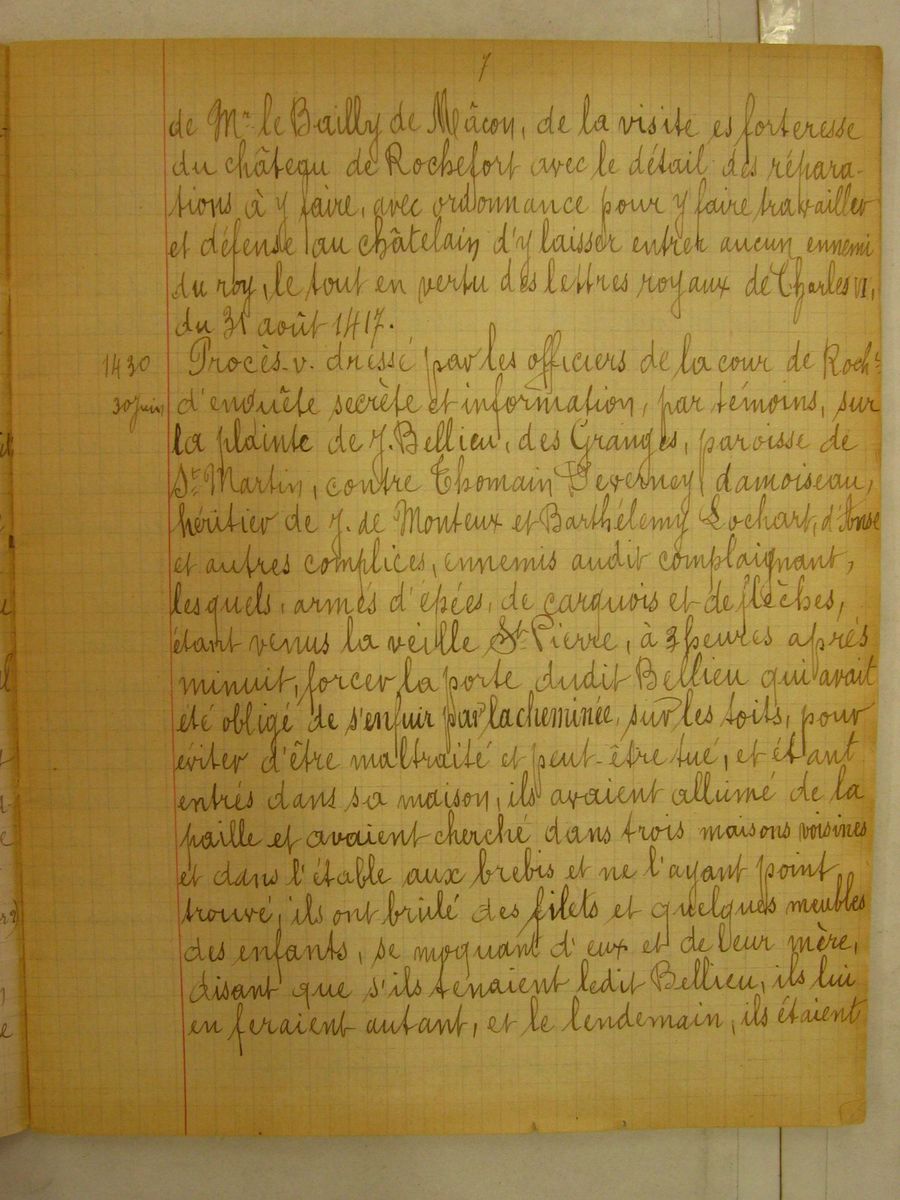 7
de Mr le Bailly de Mâcon, de la visite es forteresse
du château de Rochefort avec le détail des répara-
tions à y faire, avec ordonnance pour y faire travailler
et défense au châtelain d'y laisser entrer aucun ennemi
du roy, le tout en vertu des lettres royaux de Charles VI,
du 31 août 1417.
1430 Procès-v. dressé par les officiers de la cour de Rocht
30 juin d'enquête secrète et information, par témoins, sur
la plainte de J. Bellieu, des Granges, paroisse de
St Martin, contre Thomain Deverney damoiseau,
héritier de J. de Monteux et Barthélemy Lochart, d'Anse
et autres complices, ennemis audit complaignant,
lesquels, armés d'épées, de carquois et de flèches,
étant venus la veille St Pierre, à 3 heures après
minuit, forcer la porte dudit Bellieu qui avait
été obligé de s'enfuir par la cheminée, sur les toits, pour
éviter d'être maltraité et peut-être tué, et étant
entrés dans sa maison, ils avaient allumé de la
paille et avaient cherché dans trois maisons voisines
et dans l'étable aux brebis et ne l'ayant point
trouvé, ils ont brûlé des filets et quelques meubles
des enfants, se moquant d'eux et de leur mère,
disant que s'ils tenaient ledit Bellieu, ils lui
en feraient autant, et le lendemain, ils étaient